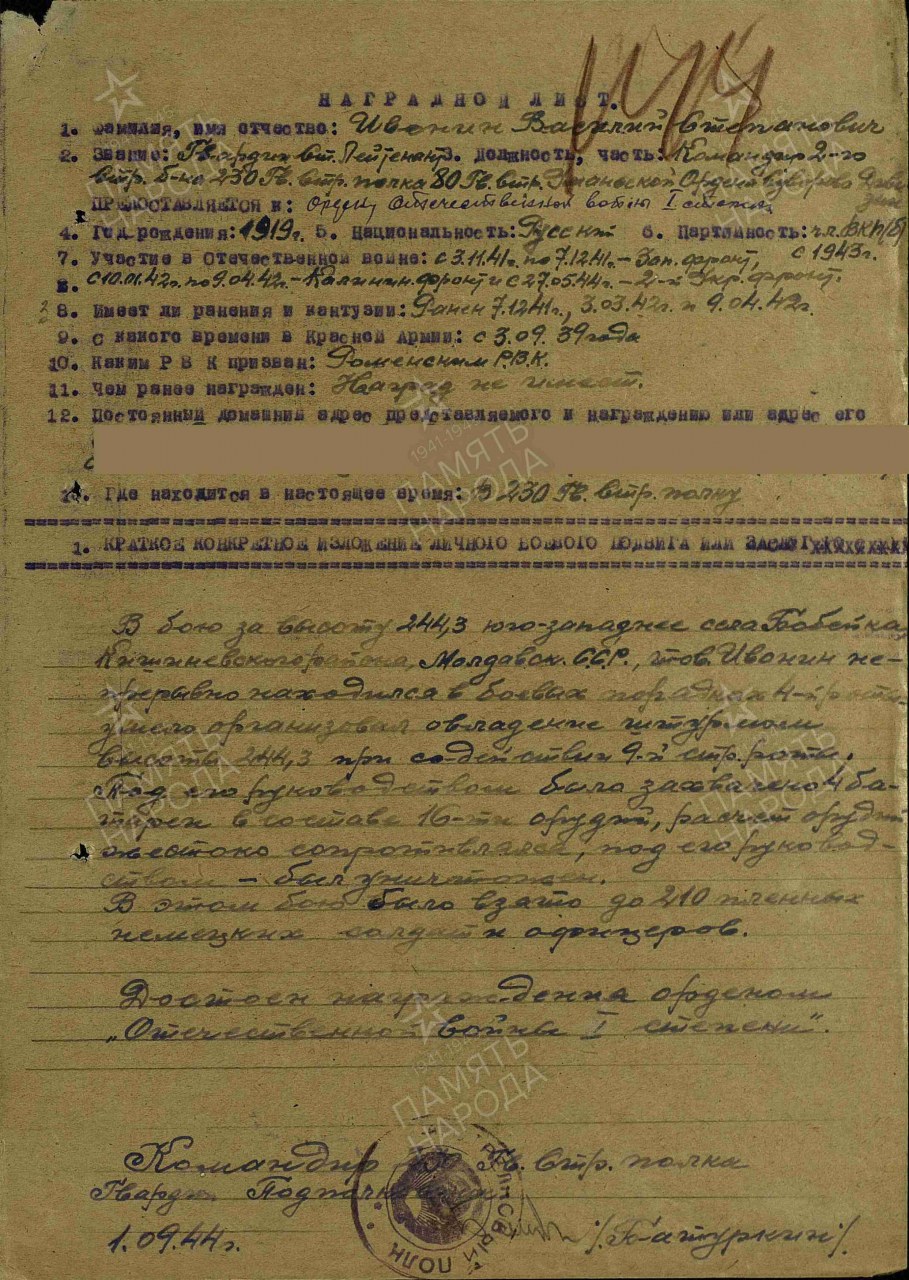 НАГРАДНОЙ ЛИСТ.
1. Фамилия, имя отчество: Ивонин Василий Степанович
2. Звание: Гвардии Ст. Лейтенант 3. Должность, часть: Командир 2-го
Стр. б-на 230 Гв. Стр. полка 80 Гв. Стр. Уманьской Орден Суворова
ПРЕДОСТАВЛЯЕТСЯ к: Ордену Отечественной войны I степени
4. Год рождения: 1919 г. 5. Национальность: Русский 6. Партийность: чл. ВКП(б)
7. Участие в Отечественной войне: с 3.11.41 г. по 7.12.41 г. – Зап. фронт, с 1943 г.
с 10.01.42 г. по 9.04.42 г. – Калинин. фронт и с 27.05.44 г. – 2-й Укр. фронт.
8. Имеет ли ранения и контузии: Ранен 7.12.41 г., 3.03.42 г. и 9.04.42 г.
9. С какого времени в Красной Армии: с 3.09.39 года
10. Каким Р В К призван: Роменским Р.В.К.
11. Чем ранее награжден: Наград не имеет.
12. Постоянный домашний адрес представляемого к награждению или адрес его
13. Где находится в настоящее время: В 230 Гв. Стр. полку
1. КРАТКОЕ КОНКРЕТНОЕ ИЗЛОЖЕНИЕ ЛИЧНОГО БОЕВОГО ПОДВИГА ИЛИ ЗАСЛУГ
В бою за высоту 244,3 юго-западнее села Бобейка,
Кишиневского района, Молдавск. ССР, тов. Ивонин не-
прерывно находился в боевых порядках 4-й роты
умело организовал овладение штурмом
высоты 244,3 при содействии 9-й стр. роты.
Под его руководством было захвачено 4 ба-
тареи в составе 16-ти орудий, расчет орудий
жестоко сопротивлялся, под его руковод-
ством – был уничтожен.
В этом бою было взято до 210 пленных
немецких солдат и офицеров.
Достоен награждения орденом
„Отечественной войны I степени".
Командир Гв. Стр. полка
Гвардии Подполковник
1.09.44 г. /Батуркин/
ПАМЯТЬ НАРОДА